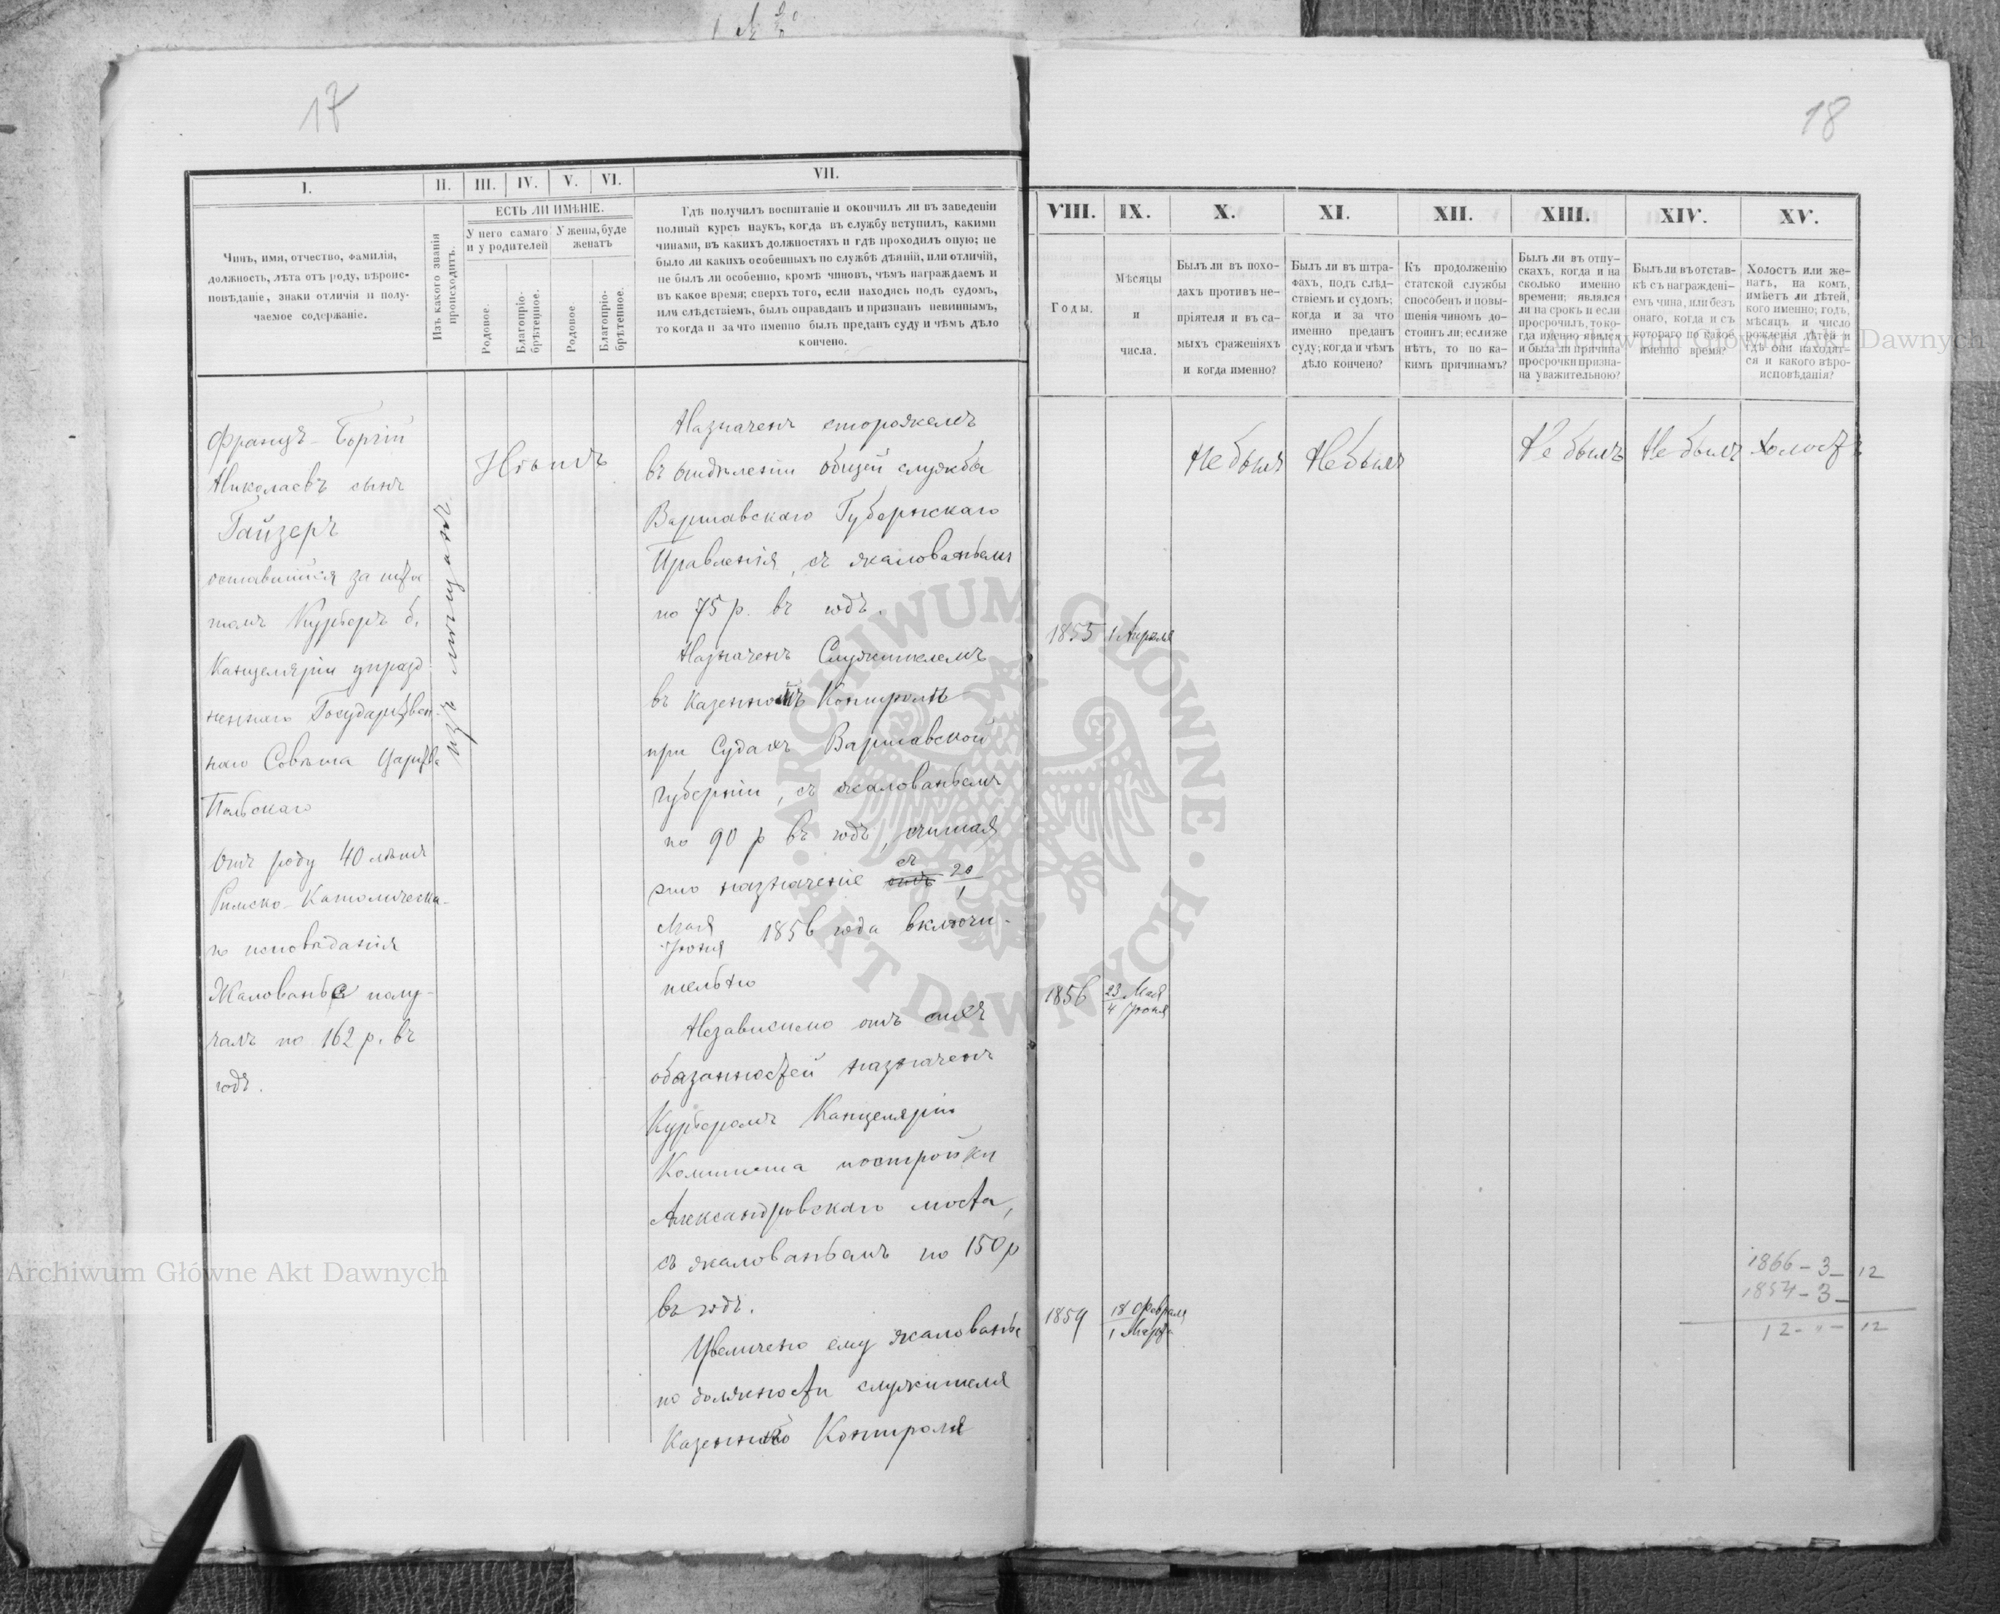 17
18
I.
II.
III.
IV.
V.
VI.
VII.
VIII.
IX.
X.
XI.
XII.
XIII.
XIV.
XV.
Чинъ, имя, отчество, фамилія,
должность, лѣта отъ роду, вѣроис-
повѣданіе, знаки отличія и полу-
чаемое содержаніе.
Изъ какого званія
происходитъ.
ЕСТЬ ЛИ ИМѢНІЕ.
У него самаго
и у родителей
У жены, буде
женатъ
Родовое.
Благопріо-
брѣтенное.
Родовое
Благопріо-
брѣтенное.
Гдѣ получилъ воспитаніе и окончилъ ли въ заведеніи
полный курсъ наукъ, когда въ службу вступилъ, какими
чинами, въ какихъ должностяхъ и гдѣ проходилъ оную; не
было ли какихъ особенныхъ по службѣ дѣяній, или отличій,
не былъ ли особенно, кромѣ чиновъ, чѣмъ награждаемъ и
въ какое время; сверхъ того, если находясь подъ судомъ,
или слѣдствіемъ, былъ оправданъ и признанъ невиннымъ,
то когда и за что именно былъ преданъ суду и чѣмъ дѣло
кончено.
Годы.
Мѣсяцы
и
числа.
Былъ ли въ похо-
дахъ противъ не-
пріятеля и въ са-
мыхъ сраженіяхъ
и когда именно?
Былъ ли въ штра-
фахъ, подъ слѣд-
ствіемъ и судомъ;
когда и за что
именно преданъ
суду; когда и чѣмъ
дѣло кончено?
Къ продолженію
статской службы
способенъ и повы-
шенія чиномъ до-
стоинъ ли; если же
нѣтъ, то по ка-
кимъ причинамъ?
Былъ ли въ отпу-
скахъ, когда и на
сколько именно
времени; являлся
ли на срокъ и если
просрочилъ, то ко-
гда именно явился
и была ли причина
просрочки призна-
на уважительною?
Былъ ли въ отстав-
кѣ съ награжденi-
емъ чина, или безъ
онаго, когда и съ
котораго по какое
именно время?
Холостъ или же-
натъ, на комъ,
имѣетъ ли дѣтей,
кого именно; годъ,
мѣсяцъ и число
рожденія дѣтей и
гдѣ они находят-
ся и какого вѣро-
исповѣданія?
Францъ-Боргій
Николаевъ сынъ
Гайзеръ
оставшійся за шта
томъ Курьеръ б.
Канцеляріи упразд
неннаго Государствен-
наго Совѣта Царства
Польскаго
Отъ роду 40 лѣтъ
Римско-Католическа-
го исповѣданія
Жалованье полу-
чалъ по 162 р. въ
годъ.
изъ мѣщанъ
Нѣтъ
Назначенъ сторожемъ
въ Отдѣленіи общей службы
Варшавскаго Губернскаго
Правленія, съ жалованьемъ
по 75 р. въ годъ.
1855 1 Апрѣля
Назначенъ Служителемъ
въ Казенномъ Контролѣ
при Судахъ Варшавской
Губерніи, съ жалованьемъ
по 90 р въ годъ, считая
это назначеніе съ 20/1
Мая/Іюня 1856 года включи-
тельно
1856 23/4 Мая/Іюня
Независимо отъ сихъ
обязанностей назначенъ
Курьеромъ Канцеляріи
Комитета постройки
Александровскаго моста,
съ жалованьемъ по 150 р
въ годъ.
1859 18/1 Февраля/Марта
Увеличено ему жалованье
по должности служителя
Казеннаго Контроля
Не былъ
Не былъ
Не былъ
Не былъ
Холостъ
1866 - 3 - 12
1854 - 3 -
12 - " - 12
Archiwum Główne Akt Dawnych
Archiwum Główne Akt Dawnych
ARCHIWUM GŁÓWNE · AKT DAWNYCH ·